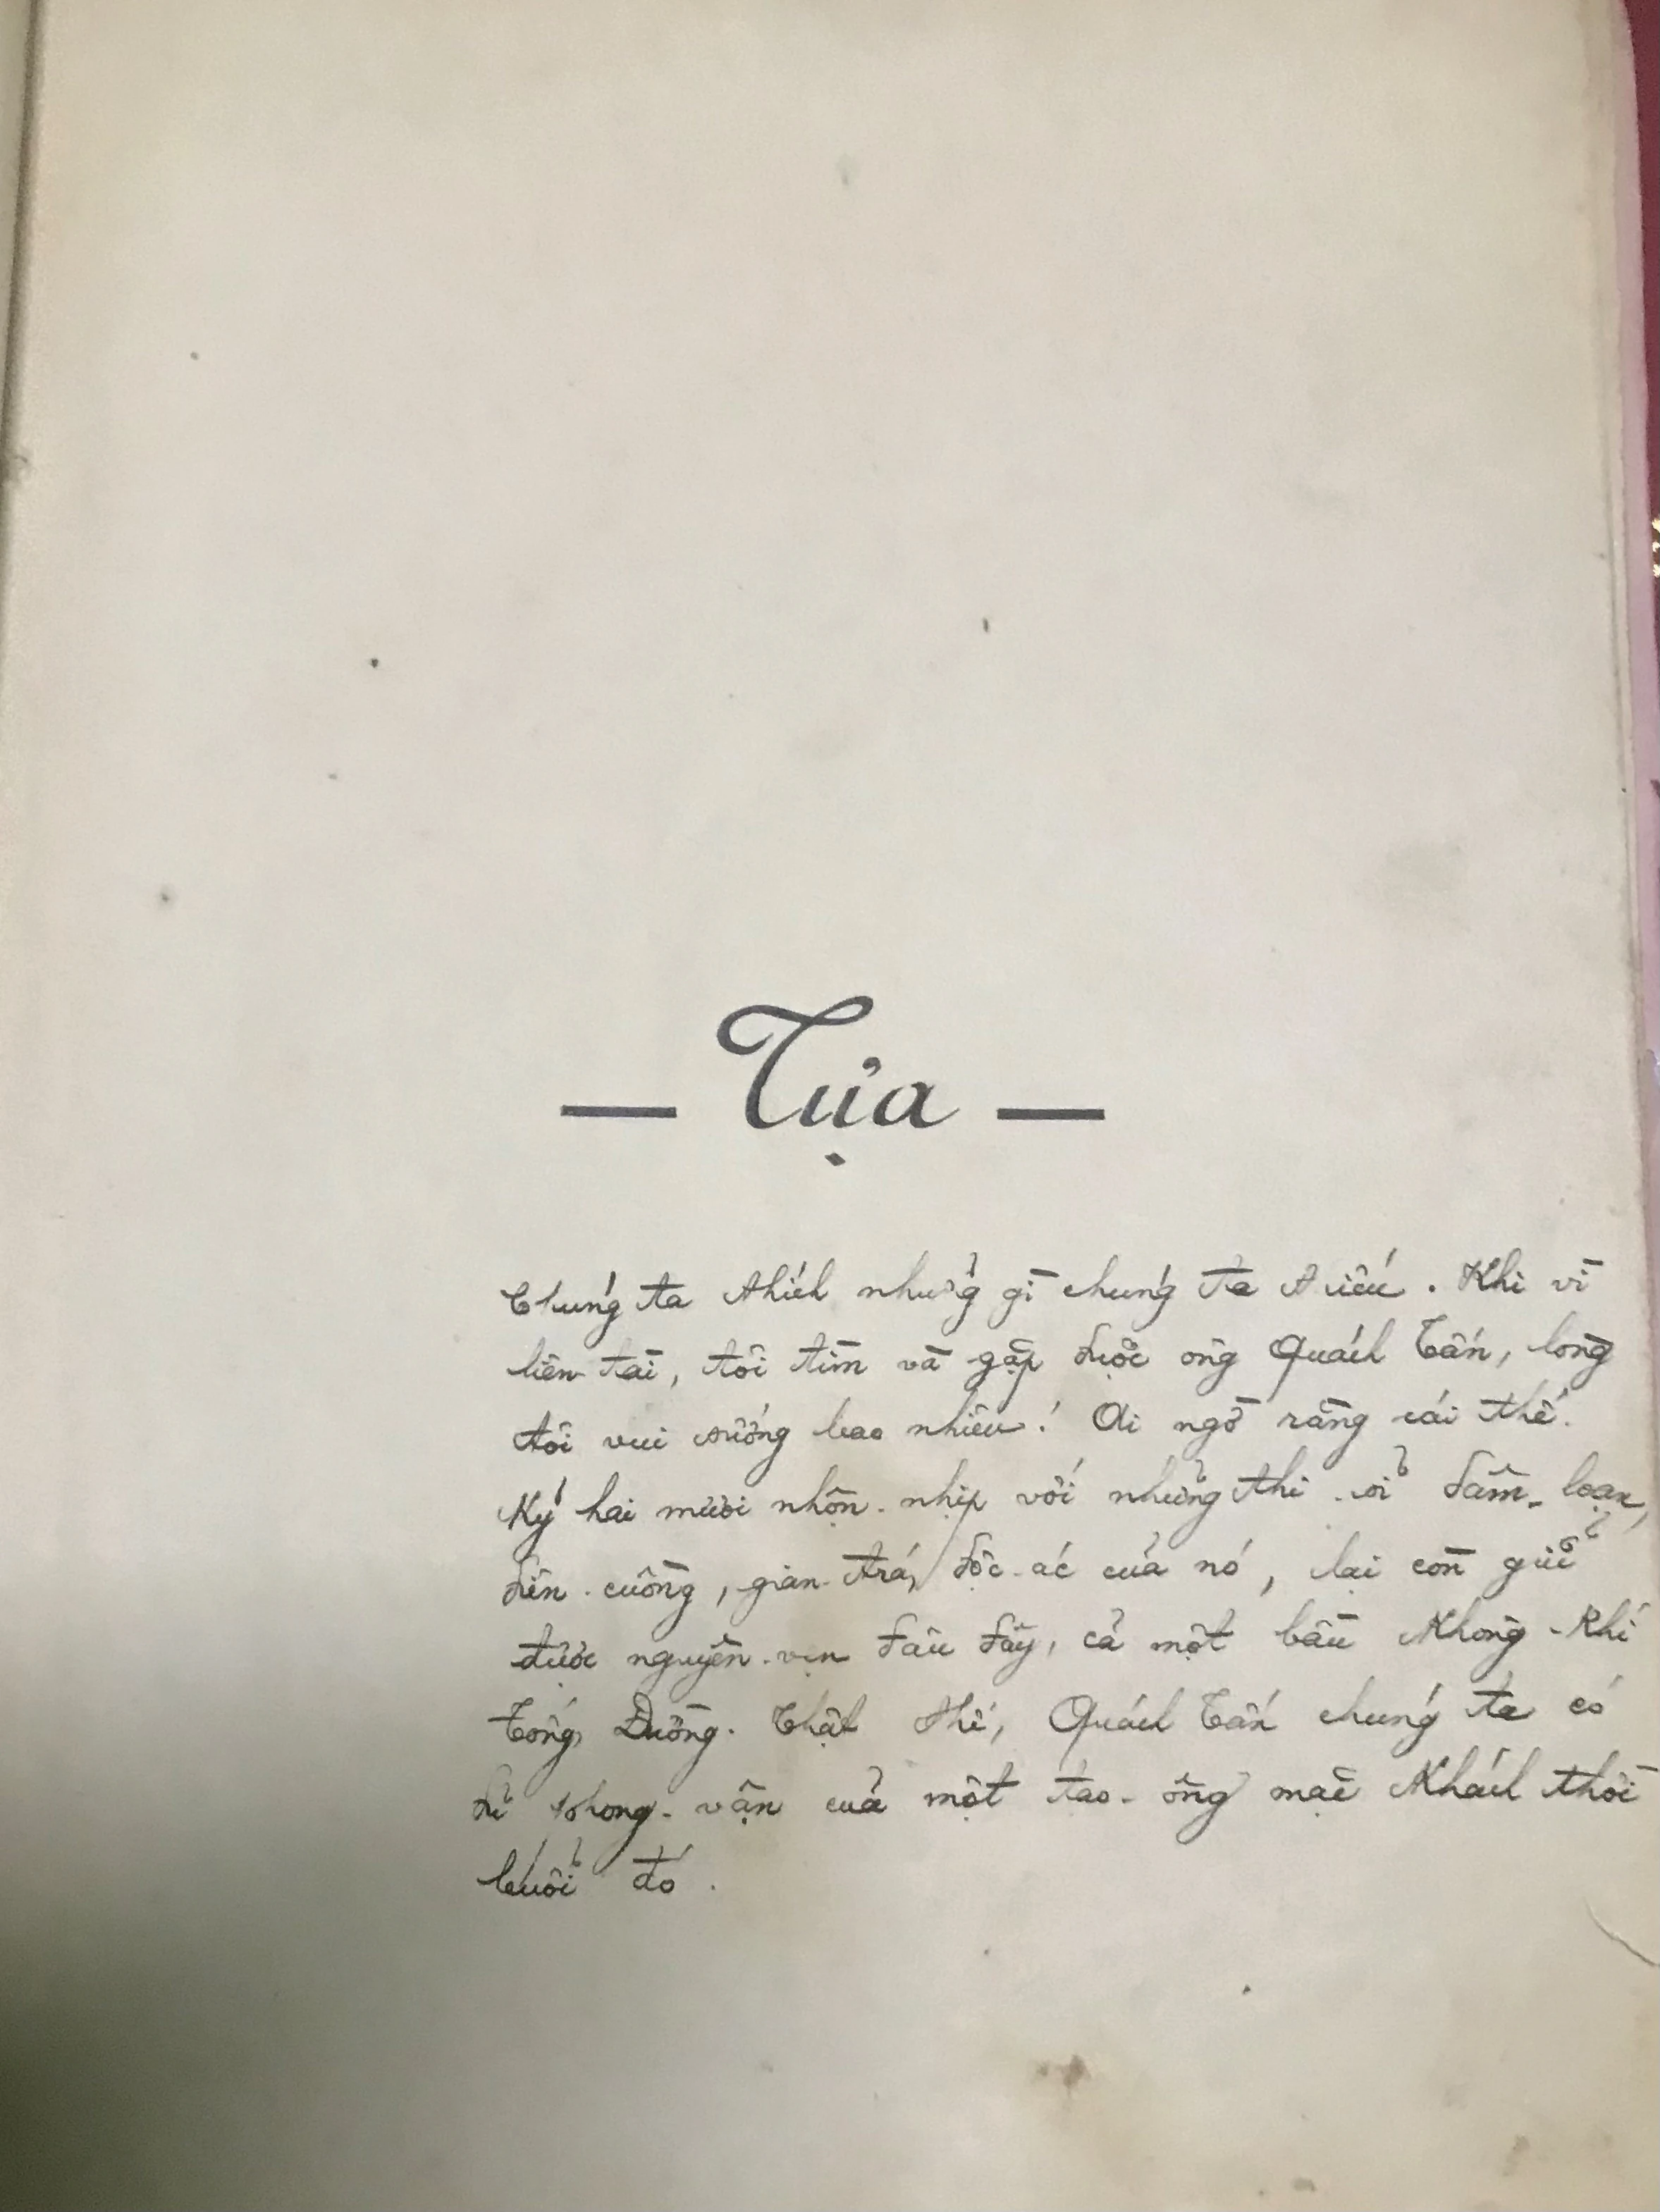 — Tựa —
Chúng ta thích những gì chúng ta thiếu. Khi vì
liên-tài, tôi tìm và gặp được ông Quách Tấn, lòng
tôi vui sướng bao nhiêu! Ai ngờ rằng cái thế-
kỷ hai mươi nhộn-nhịp với những thi-sĩ dâm-loạn,
điên-cuồng, gian-trá, độc-ác của nó, lại còn giữ
được nguyên-vẹn đâu đây, cả một bầu không-khí
Tống, Đường. Thật thế, Quách Tấn chúng ta có
đủ phong-vận của một tao-ông mặc khách thời
buổi đó.